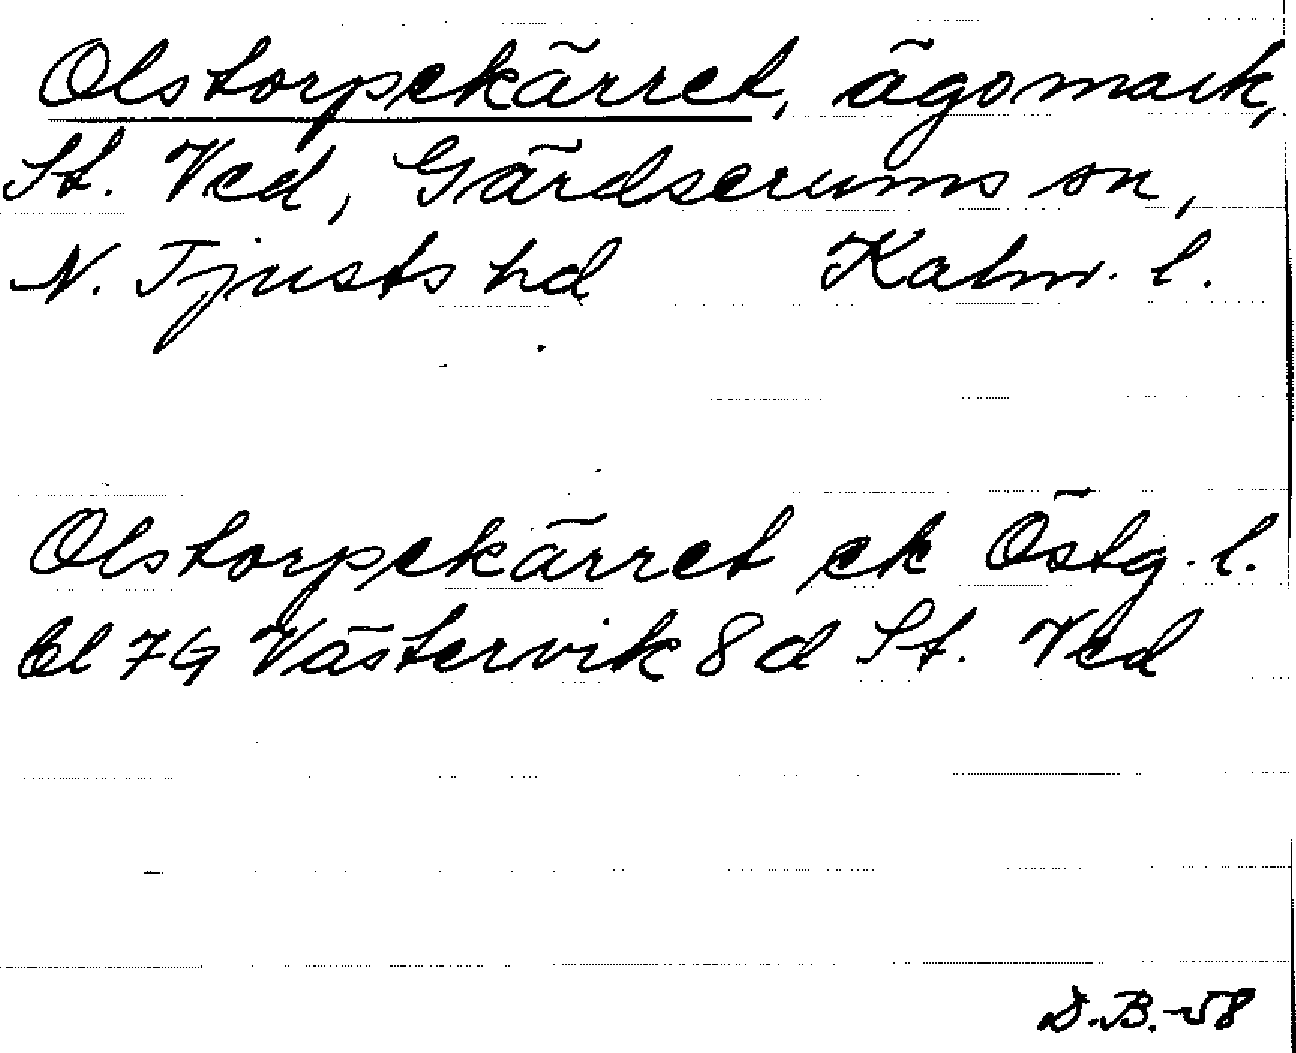 Olstorpekärret, ägomark,
St. Ved, Gärdserums sn,
N. Tjusts hd Kalm. l.
Olstorpekärret ek Östg. l.
bl 7G Västervik 8d St. Ved
D.B.-58